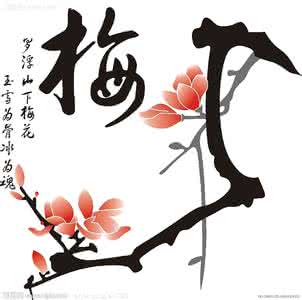 梅
罗浮山下梅花
玉雪为骨冰为魂